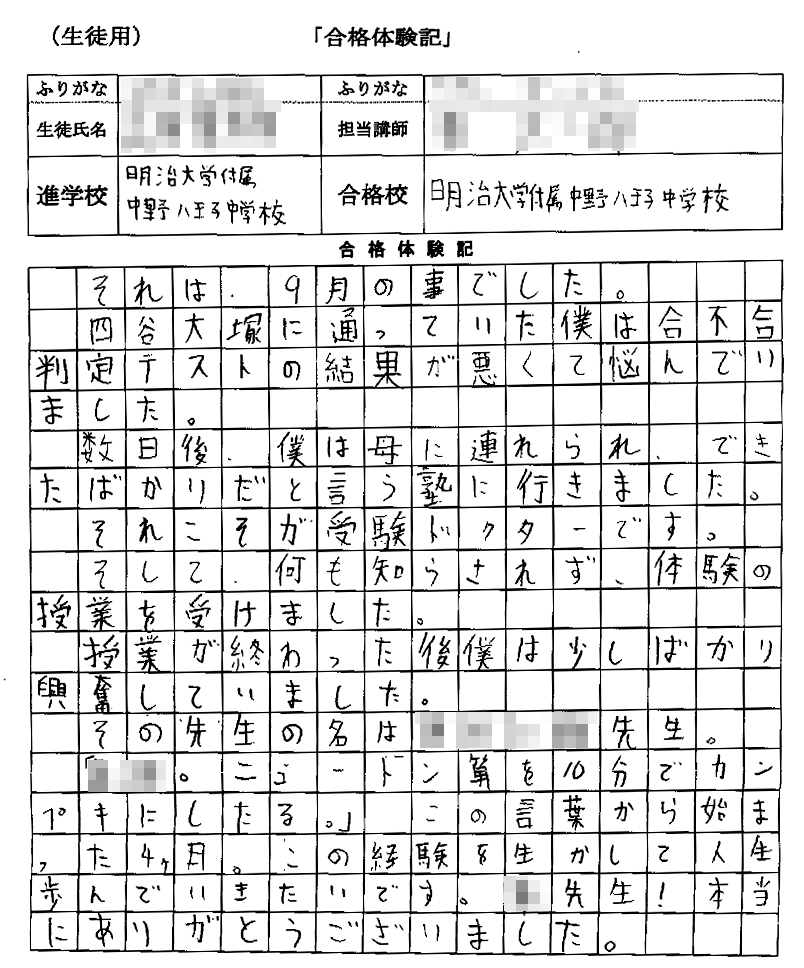 (生徒用) 「合格体験記」
ふりがな ふりがな
生徒氏名 担当講師
進学校 明治大学付属中野八王子中学校 合格校 明治大学付属中野八王子中学校
合格体験記
それは、9月の事でした。
四谷大塚に通っていた僕は合不合
判定テストの結果が悪くて悩んでい
ました。
数日後、僕は母に連れられ、でき
たばかりだと言う塾に行きました。
それこそが受験ドクターです。
そして、何も知らされず、体験の
授業を受けました。
授業が終わった後僕は少しばかり
興奮していました。
その先生の名は 先生。
「 。ニュードン算を10分でカン
ペキにしたる。」 この言葉から始ま
った4ヶ月。この経験を生かして人生
歩んでいきたいです。 先生!本当
にありがとうございました。